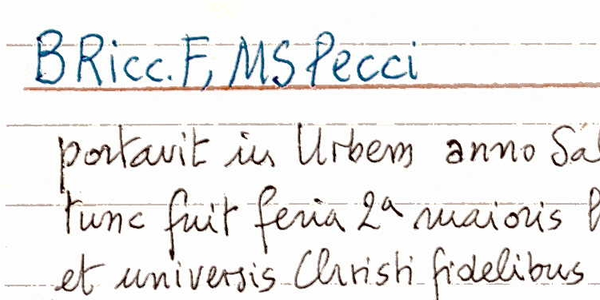 B Ricc. F, MS Pecci
portavit in Urbem anno Sal
tunc fuit feria 2ª maioris h
et universis Christi fidelibus